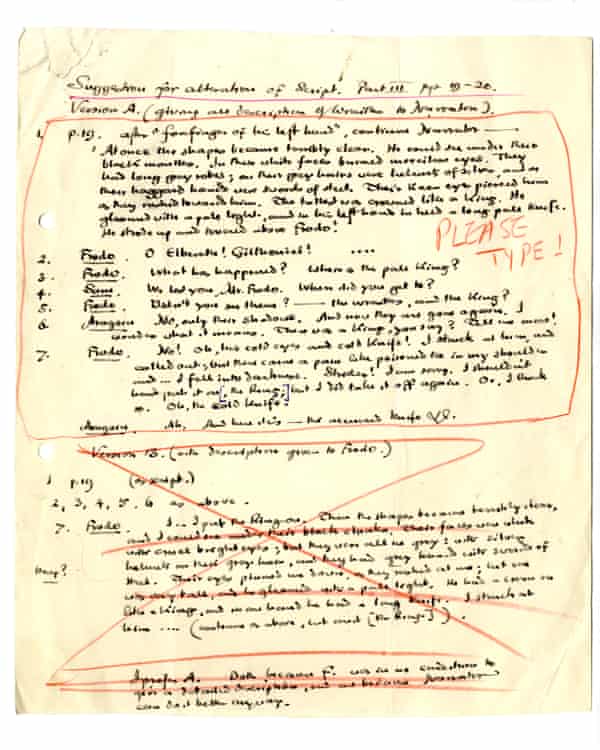 Suggestion for alteration of Script. Part III. pp 19-20.
Version A. (giving all description of Wraiths to Narrator).
1. p.19. after "forefinger of his left hand", continue Narrator —
'At once the shapes became terribly clear. He could see under their
black mantles. In their white faces burned merciless eyes. They
had long grey robes; on their grey hairs were helmets of silver, and in
their haggard hands were swords of steel. Their keen eyes pierced him
as they rushed toward him. The tallest was crowned like a king. He
gleamed with a pale light, and in his left hand he held a long pale knife.
He strode up and towered above Frodo!
PLEASE TYPE!
2. Frodo. O Elbereth! Gilthoniel! ....
3. Frodo. What has happened? Where is the pale King?
4. Sam. We lost you, Mr. Frodo. Where did you get to?
5. Frodo. Didn't you see them? — the wraiths, and the King?
6. Aragorn No, only their shadows. And now they are gone again. I
wonder what it means. There was a King, you say? Tell me more!
7. Frodo. No! Oh, his cold eyes and cold knife! I struck at him, and
called out; but there came a pain like poisoned ice in my shoulder
and ... I fell into darkness. Strider! I am sorry. I shouldn't
have put it on, [the Ring,] but I did take it off again. Or, I think
so. Oh, the cold knife!
Aragorn. Ah, And here it is — the accursed knife
Version B. (with description given to Frodo.)
1 p.19 (as script.)
2, 3, 4, 5, 6 as above.
7. Frodo. I ... I put the Ring on. Then the shapes became terribly clear,
and I could see under their black cloaks. Their faces were white
with cruel bright eyes; but they were all in grey: with silver
helmets on their grey hair, and they had grey hands with swords of
steel. Their eyes pinned me down, as they rushed at me; but one
was very tall, and he gleamed with a pale light. He had a crown on
like a king, and in one hand he had a long knife. I struck at
him .... (continue as above, but omit [the Ring]).
I prefer A. Both because F. was in no condition to
give a detailed description, and because Narrator
can do it better anyway.